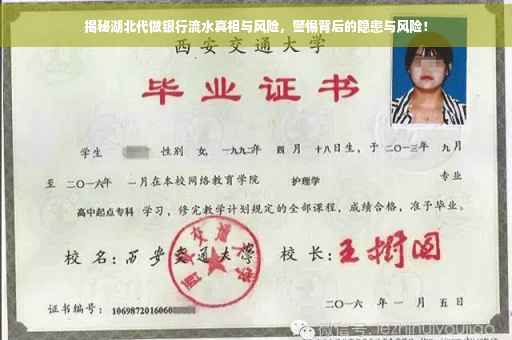 揭秘湖北代做银行流水真相与风险，警惕背后的隐患与风险！
西安交通大学
毕业证书
学生 性别 女，一九九二年 四月 十八日生，于二〇一三年 九月
至 二〇一六年 一月在本校网络教育学院 护理学 专业
高中起点专科 学习，修完教学计划规定的全部课程，成绩合格，准予毕业。
校名：西安交通大学 校长：王树国
西安交通大学
证书编号：1069872016060 二〇一六年一月五日
微信号: jiezhihuiyoujiao